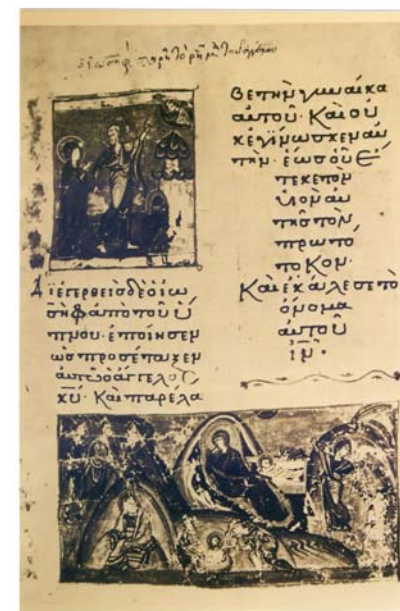 Διεγερθεις δε ὁ ἰω
σὴφ ἀπὸ τοῦ ὕ
πνου· ἐποίησεν
ὡς προσέταξεν
αυτῶ ὁ ἄγγελος
κ̅υ̅· Καὶ παρέλα
Βε τὴν γυναίκα
αυτοῦ· Καὶ οὐ
κ ἐγίνωσκεν αυ
τὴν· ἕως οὗ Ἔ
τεκε τὸν
ὑιὸν αυ
τῆς τὸν
πρωτό
τοκον·
Καὶ ἐκάλεσε τὸ
ὄνομα
αυτοῦ
ι̅ν̅·